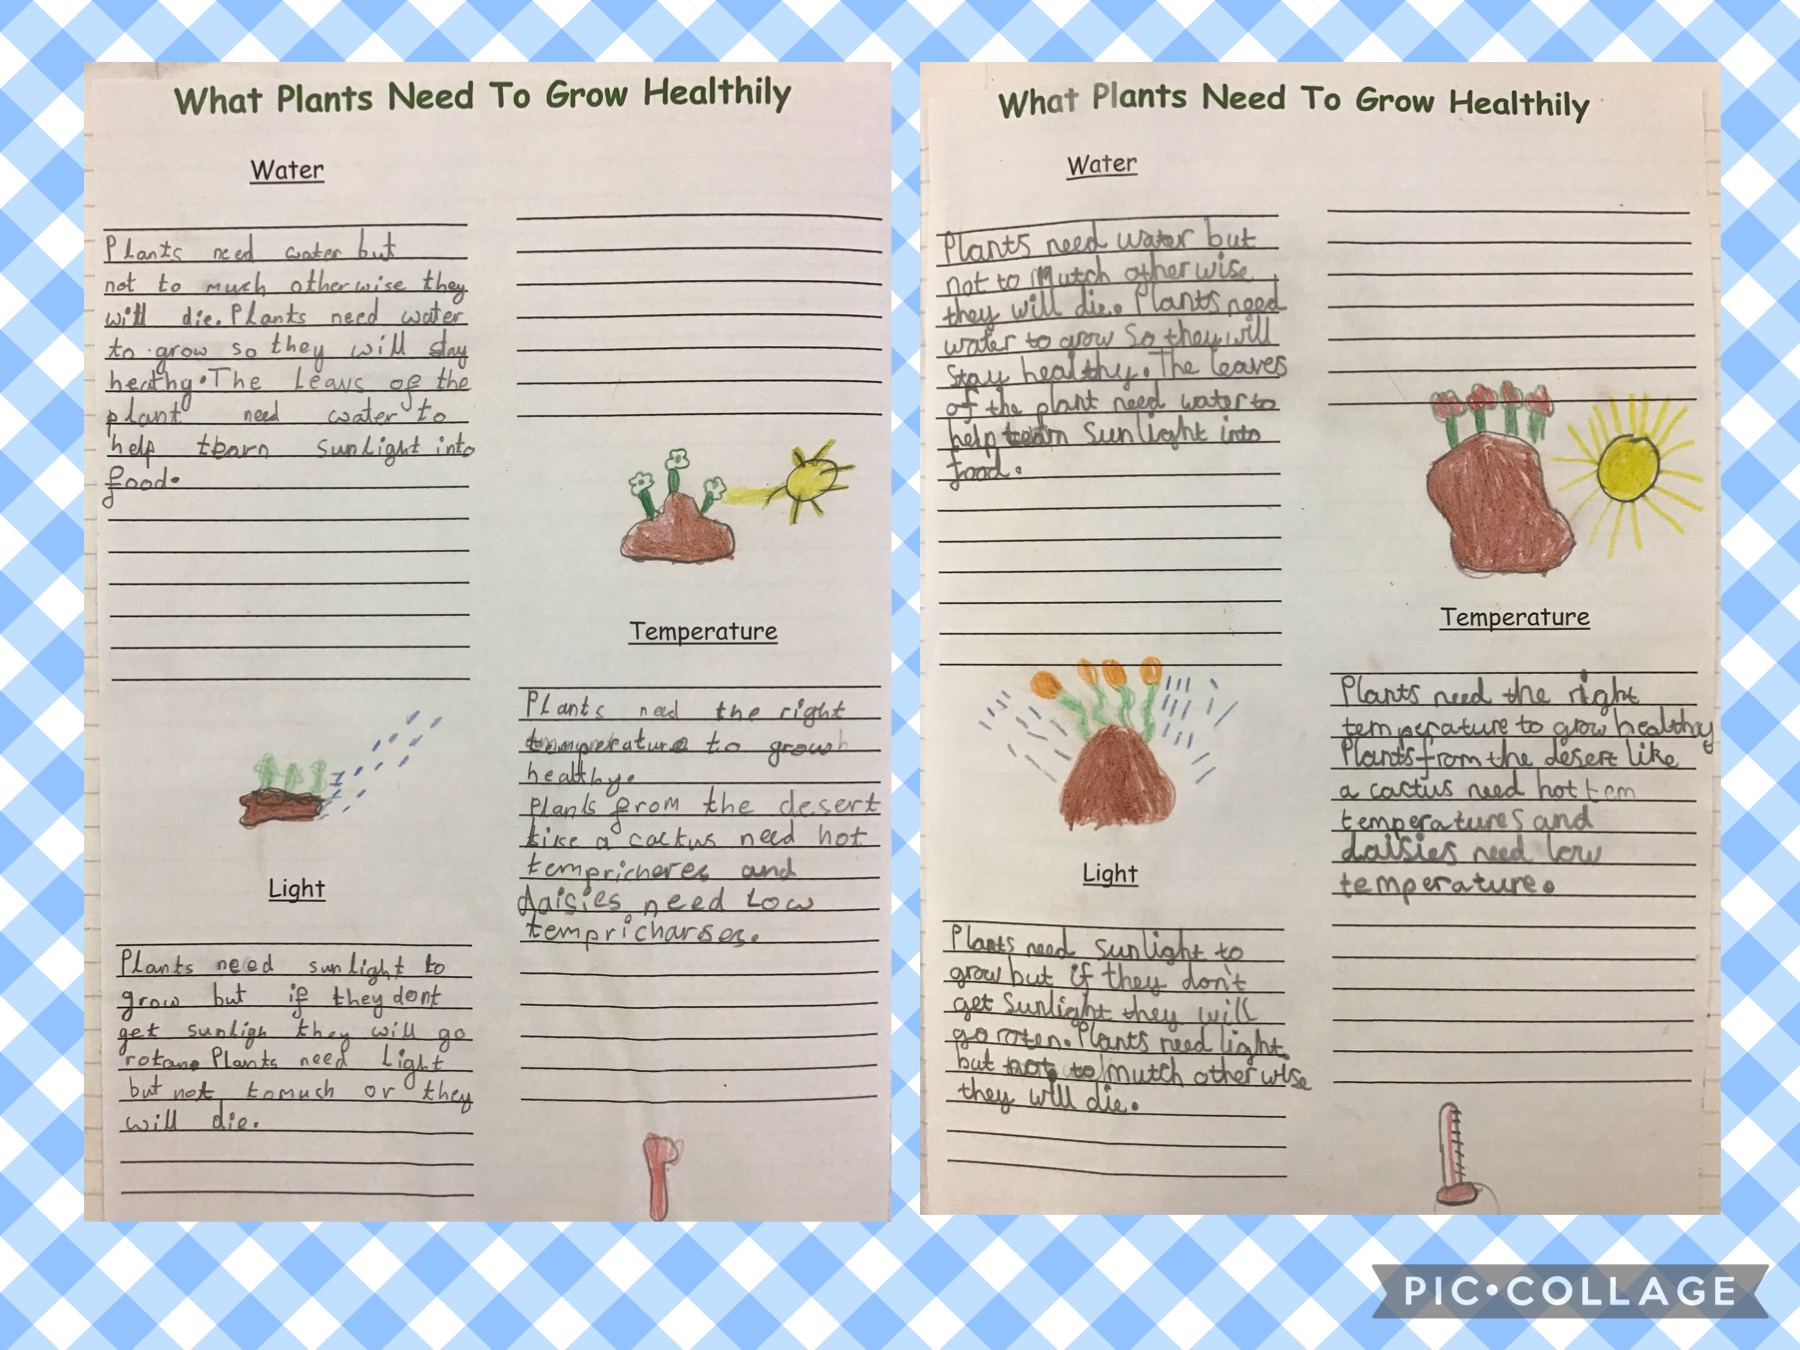 What Plants Need To Grow Healthily
Water
Plants need water but
not to much otherwise they
will die. Plants need water
to grow so they will stay
heathy. The leavs of the
plant need water to
help tearn sunlight into
food.
Light
Plants need sunlight to
grow but if they dont
get sunligh they will go
rotano Plants need Light
but not tomuch or they
will die.
Temperature
Plants need the right
temperature to grow
healthy.
plants from the desert
like a cactus need hot
tempricheres and
daisies need Low
What Plants Need To Grow Healthily
Water
Plants need water but
not to Mutch otherwise
they will die. Plants need
water to grow So they will
Stay healthy. The leaves
of the plant need water to
help Sunlight into
food.
Light
Plants need sunlight to
grow but if they don't
get Sunlight they will
go roten. Plants need light
but not to mutch otherwise
they will die.
Temperature
Plants need the right
temperature to grow healthy
Plants from the desert like
a cactus need hot tem
temperatures and
daisies need low
temperature.
PIC•COLLAGE